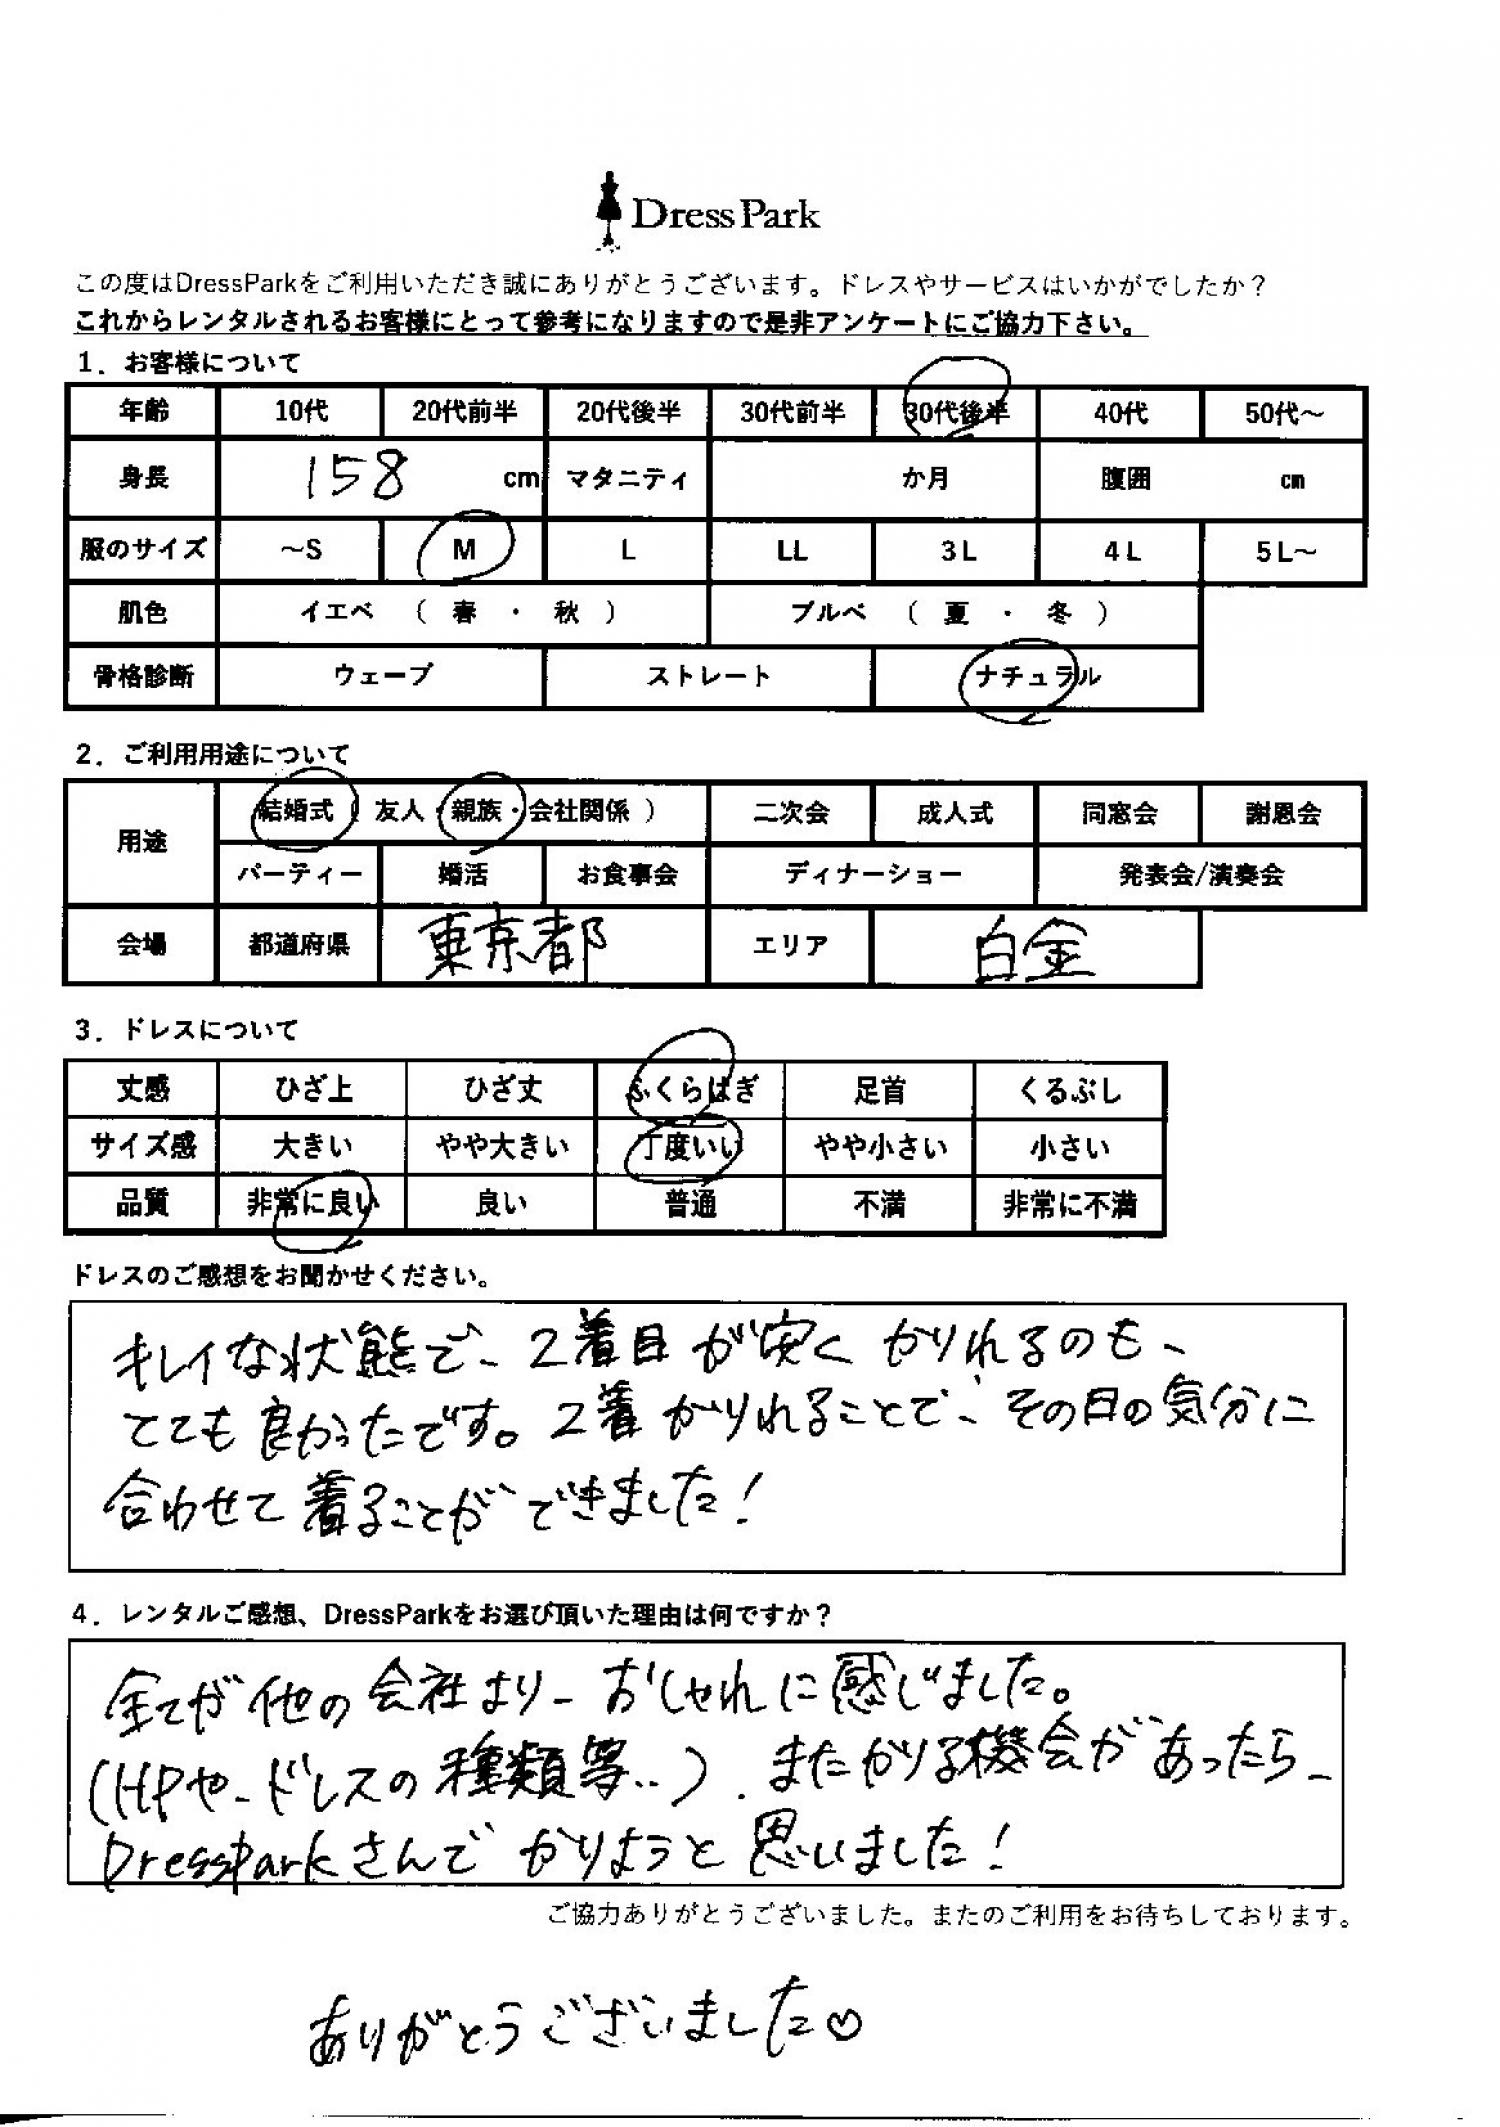 Dress Park
この度はDressParkをご利用いただき誠にありがとうございます。ドレスやサービスはいかがでしたか？
これからレンタルされるお客様にとって参考になりますので是非アンケートにご協力下さい。
1．お客様について
年齢 10代 20代前半 20代後半 30代前半 30代後半 40代 50代～
身長 158 cm マタニティ か月 腹囲 cm
服のサイズ ～S M L LL 3L 4L 5L～
肌色 イエベ （ 春 ・ 秋 ） ブルベ （ 夏 ・ 冬 ）
骨格診断 ウェーブ ストレート ナチュラル
2．ご利用用途について
用途 結婚式（ 友人・親族・会社関係 ） 二次会 成人式 同窓会 謝恩会
パーティー 婚活 お食事会 ディナーショー 発表会/演奏会
会場 都道府県 東京都 エリア 白金
3．ドレスについて
丈感 ひざ上 ひざ丈 ふくらはぎ 足首 くるぶし
サイズ感 大きい やや大きい 丁度いい やや小さい 小さい
品質 非常に良い 良い 普通 不満 非常に不満
ドレスのご感想をお聞かせください。
キレイな状態で、2着目が安くかりれるのも、
とても良かったです。2着かりれることで、その日の気分に
合わせて着ることができました！
4．レンタルご感想、DressParkをお選び頂いた理由は何ですか？
全てが他の会社より、おしゃれに感じました。
（HPや、ドレスの種類等‥）．またかりる機会があったら、
DressParkさんでかりようと思いました！
ご協力ありがとうございました。またのご利用をお待ちしております。
ありがとうございました♡